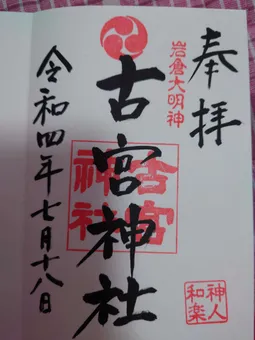 奉拝
岩倉大明神
古宮神社
古宮
神社
令和四年七月十八日
神人
和楽